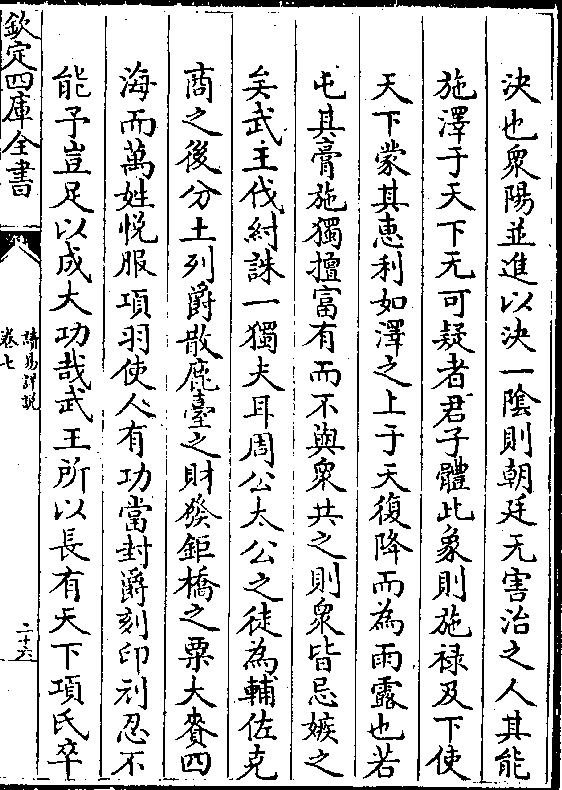 決也衆陽並進以決一陰則朝廷无害治之人其能
施澤于天下无可疑者君子體此象則施禄及下使
天下蒙其恵利如澤之上于天復降而為雨露也若
屯其膏施獨擅富有而不與衆共之則衆皆忌嫉之
矣武王伐紂誅一獨夫耳周公太公之徒為輔佐克
商之後分土列爵散鹿臺之財發鉅橋之粟大賚四
海而萬姓悦服項羽使人有功當封爵刻印刓忍不
能予豈足以成大功哉武王所以長有天下項氏卒
欽定四庫全書
讀易詳説
卷七
二十六